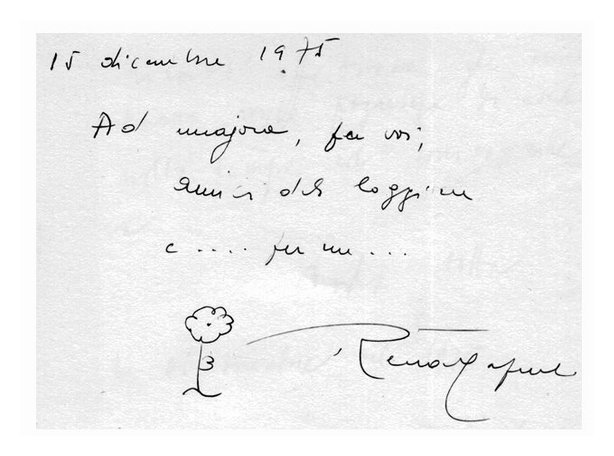 15 dicembre 1975
Ad majora, per voi,
amici del loggione
e .... per me ...